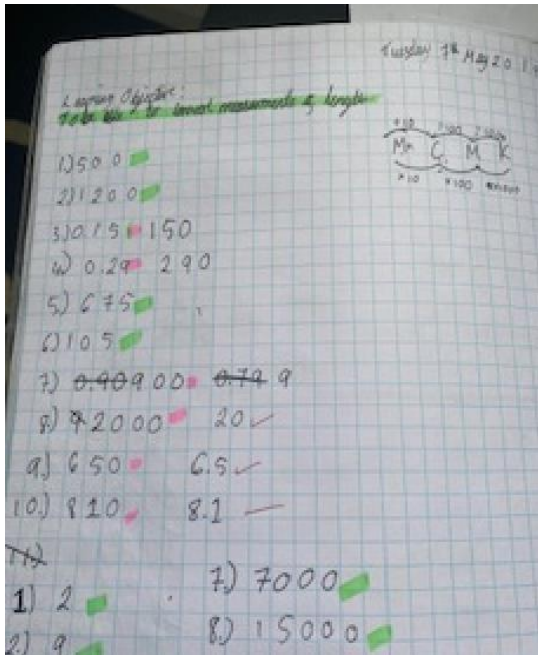 Tuesday 7th May 201
Learning Objective:
To be able to convert measurements of length
÷10 ÷100
Mm C M K
×10 ×100
1) 500
2) 1200
3) 0.15 150
4) 0.29 290
5) 675
6) 105
7) 0.90 900 0.79 9
8) 2000 20
9.) 650 6.5
10.) 810 8.1
1) 2 7.) 7000
2.) 9 8.) 15000